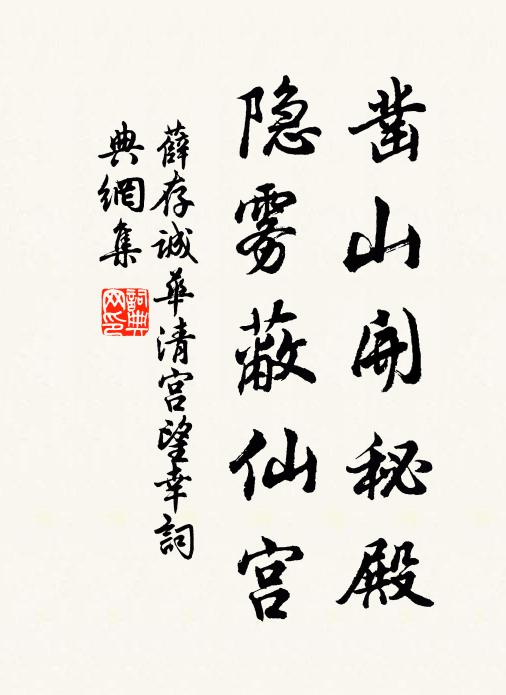 凿山开秘殿
隐雾蔽仙宫
薛存诚华清宫望幸詞
典網集
詞典
网印